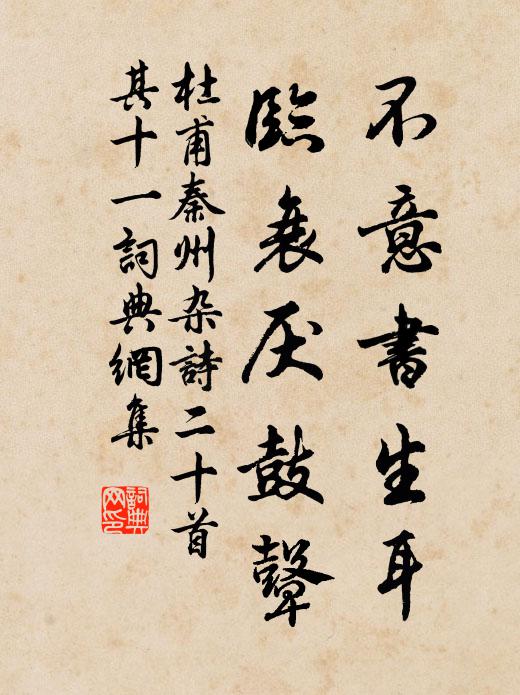 不意書生耳
臨衰厌鼓聲
杜甫秦州杂詩二十首
其十一詞典網集
詞典
网印